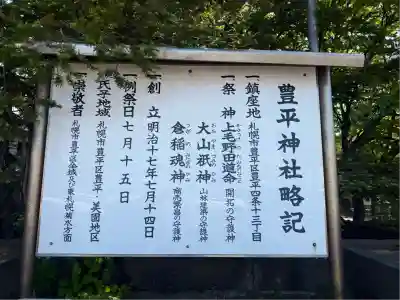 豊平神社略記
一鎮座地 札幌市豊平区豊平四条十三丁目
一祭神 上毛野田道命 開拓の守護神
大山祇神 山林建築の守護神
倉稲魂神 商売繁昌の守護神
一創立 明治十七年七月十四日
一例祭日 七月十五日
一氏子地域 札幌市豊平区豊平、美園地区
一崇敬者 札幌市豊平区全域及び東札幌、菊水方面